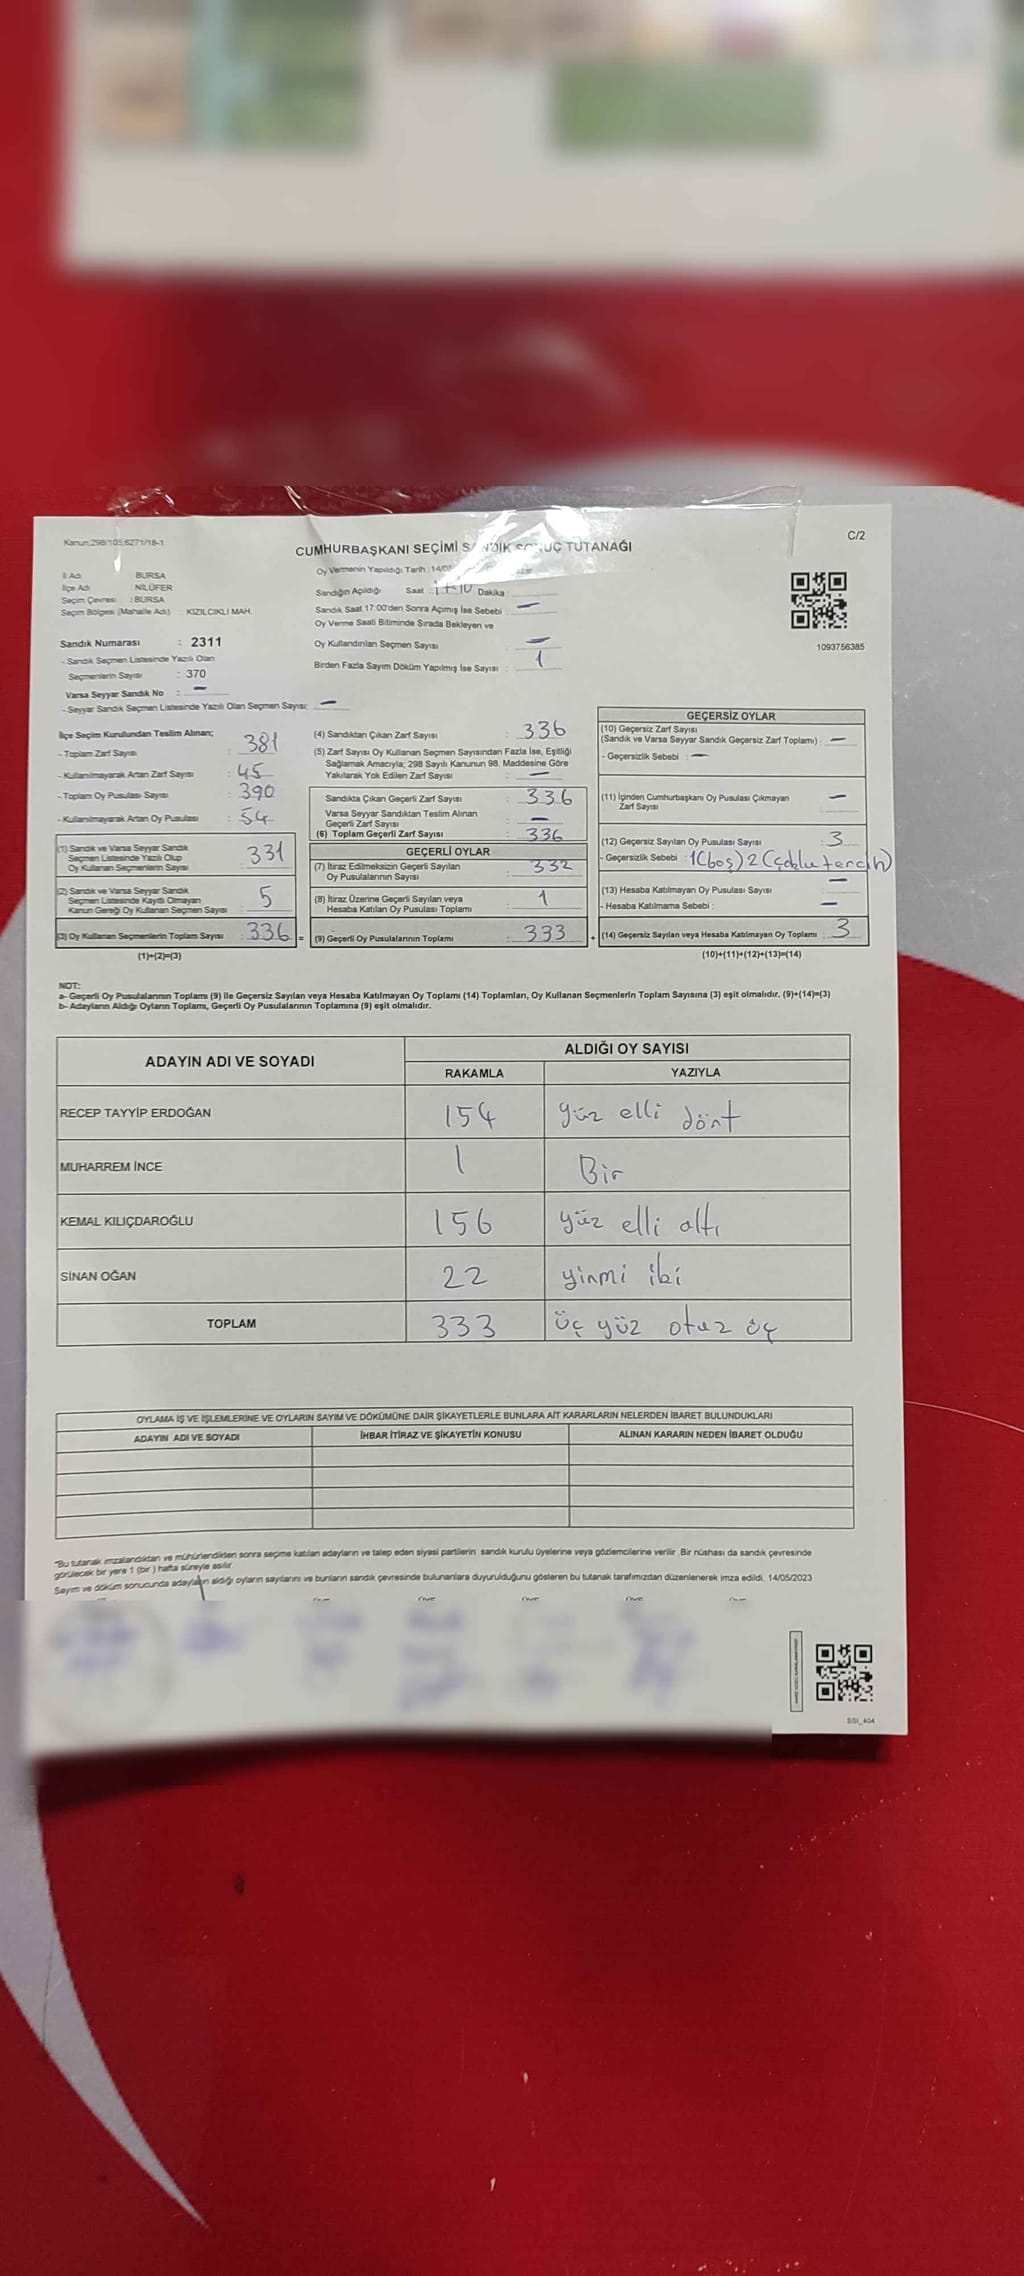 Kanun:298/105;6271/18-1
C/2
CUMHURBAŞKANI SEÇİMİ SANDIK SONUÇ TUTANAĞI
İl Adı BURSA
İlçe Adı NİLÜFER
Seçim Çevresi : BURSA
Seçim Bölgesi (Mahalle Adı) KIZILCIKLI MAH.
Oy Vermenin Yapıldığı Tarih
Sandığın Açıldığı Saat : Dakika :
Sandık Saat 17:00'den Sonra Açımış İse Sebebi : —
Oy Verme Saati Bitiminde Sırada Bekleyen ve
Oy Kullandırılan Seçmen Sayısı : —
Birden Fazla Sayım Döküm Yapılmış İse Sayısı : 1
1093756385
Sandık Numarası : 2311
- Sandık Seçmen Listesinde Yazılı Olan
Seçmenlerin Sayısı : 370
Varsa Seyyar Sandık No : —
- Seyyar Sandık Seçmen Listesinde Yazılı Olan Seçmen Sayısı: —
İlçe Seçim Kurulundan Teslim Alınan;
- Toplam Zarf Sayısı : 381
- Kullanılmayarak Artan Zarf Sayısı : 45
- Toplam Oy Pusulası Sayısı : 390
- Kullanılmayarak Artan Oy Pusulası : 54
(1) Sandık ve Varsa Seyyar Sandık
Seçmen Listesinde Yazılı Olup
Oy Kullanan Seçmenlerin Sayısı : 331
(2) Sandık ve Varsa Seyyar Sandık
Seçmen Listesinde Kayıtlı Olmayan
Kanun Gereği Oy Kullanan Seçmen Sayısı : 5
(3) Oy Kullanan Seçmenlerin Toplam Sayısı : 336 =
(1)+(2)=(3)
(4) Sandıktan Çıkan Zarf Sayısı : 336
(5) Zarf Sayısı Oy Kullanan Seçmen Sayısından Fazla İse, Eşitliği
Sağlamak Amacıyla; 298 Sayılı Kanunun 98. Maddesine Göre
Yakılarak Yok Edilen Zarf Sayısı : —
Sandıkta Çıkan Geçerli Zarf Sayısı : 336
Varsa Seyyar Sandıktan Teslim Alınan
Geçerli Zarf Sayısı : —
(6) Toplam Geçerli Zarf Sayısı : 336
GEÇERLİ OYLAR
(7) İtiraz Edilmeksizin Geçerli Sayılan
Oy Pusulalarının Sayısı : 332
(8) İtiraz Üzerine Geçerli Sayılan veya
Hesaba Katılan Oy Pusulası Toplamı : 1
(9) Geçerli Oy Pusulalarının Toplamı : 333 +
GEÇERSİZ OYLAR
(10) Geçersiz Zarf Sayısı
(Sandık ve Varsa Seyyar Sandık Geçersiz Zarf Toplamı) : —
- Geçersizlik Sebebi : —
(11) İçinden Cumhurbaşkanı Oy Pusulası Çıkmayan
Zarf Sayısı : —
(12) Geçersiz Sayılan Oy Pusulası Sayısı : 3
- Geçersizlik Sebebi : 1(boş) 2 (çoklu tercih)
(13) Hesaba Katılmayan Oy Pusulası Sayısı : —
- Hesaba Katılmama Sebebi : —
(14) Geçersiz Sayılan veya Hesaba Katılmayan Oy Toplamı : 3
(10)+(11)+(12)+(13)=(14)
NOT:
a- Geçerli Oy Pusulalarının Toplamı (9) ile Geçersiz Sayılan veya Hesaba Katılmayan Oy Toplamı (14) Toplamları, Oy Kullanan Seçmenlerin Toplam Sayısına (3) eşit olmalıdır. (9)+(14)=(3)
b- Adayların Aldığı Oyların Toplamı, Geçerli Oy Pusulalarının Toplamına (9) eşit olmalıdır.
ADAYIN ADI VE SOYADI ALDIĞI OY SAYISI
RAKAMLA YAZIYLA
RECEP TAYYİP ERDOĞAN 154 yüz elli dört
MUHARREM İNCE 1 Bir
KEMAL KILIÇDAROĞLU 156 yüz elli altı
SİNAN OĞAN 22 yirmi iki
TOPLAM 333 üç yüz otuz üç
OYLAMA İŞ VE İŞLEMLERİNE VE OYLARIN SAYIM VE DÖKÜMÜNE DAİR ŞİKAYETLERLE BUNLARA AİT KARARLARIN NELERDEN İBARET BULUNDUKLARI
ADAYIN ADI VE SOYADI İHBAR İTİRAZ VE ŞİKAYETİN KONUSU ALINAN KARARIN NEDEN İBARET OLDUĞU
"Bu tutanak imzalandıktan ve mühürlendikten sonra seçime katılan adayların ve talep eden siyasi partilerin sandık kurulu üyelerine veya gözlemcilerine verilir. Bir nüshası da sandık çevresinde
görülecek bir yere 1 (bir) hafta süreyle asılır.
Sayım ve döküm sonucunda adayların aldığı oyların sayılarını ve bunların sandık çevresinde bulunanlara duyurulduğunu gösteren bu tutanak tarafımızdan düzenlenerek imza edildi. 14/05/2023
SSI_404